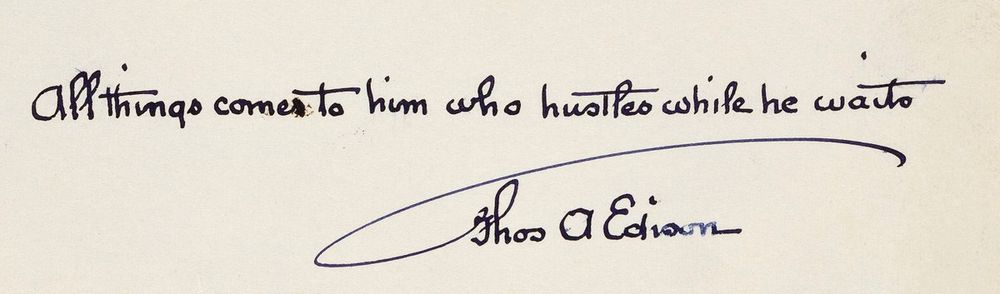 All things comes to him who hustles while he waits
Thos A Edison